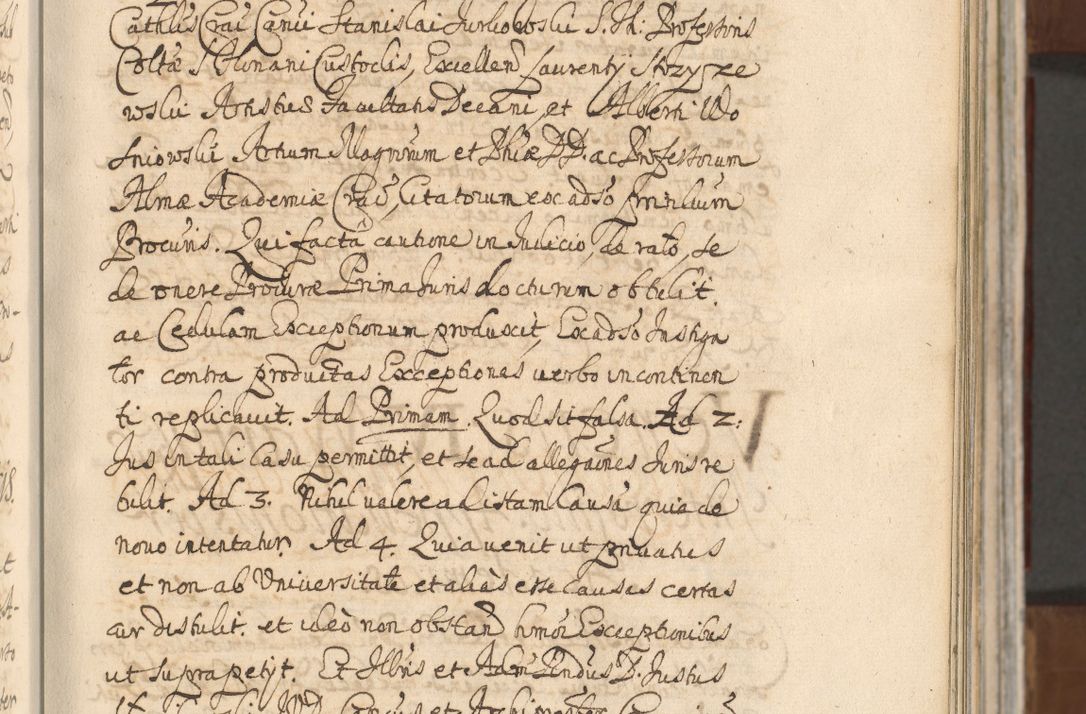 Cathlis Crac̃ Canci Stanislai Jurkowski S. Th. Professoris
Coltæ S. Floriani Custodis, Excellen̄ Laurenty Strzysze
wski Artisticæ Facultatis Decani, et Alberti Wo
sniowski Artium Magrorum et Phiæ DD. ac Professorum
Almæ Academiæ Crac̃, Citatorum ex adso Prinlium
Procuris. Qui facta cautione in Judicio, de rato, se
de onere Procuræ Prima Juris docturum obtulit.
ac Cedulam Exceptionum produxit, Ex adso Instiga
tor contra productas Exceptiones verbo incontinen
ti replicavit. Ad Primam. Quod sit falsa. Ad 2:
Jus in tali casu permittit, et se ad allegaones Juris re
tulit. Ad 3. Nihil valere ad istam Causã quia de
novo intentatur. Ad 4. Quia venit ut privatus
et non ab Universitate et aliàs esse Causas certas
cur distulit. et ideò non obstan̄ hmõi Exceptionibus
ut supra petijt. Et Illris et Adm Rndus D. Justus